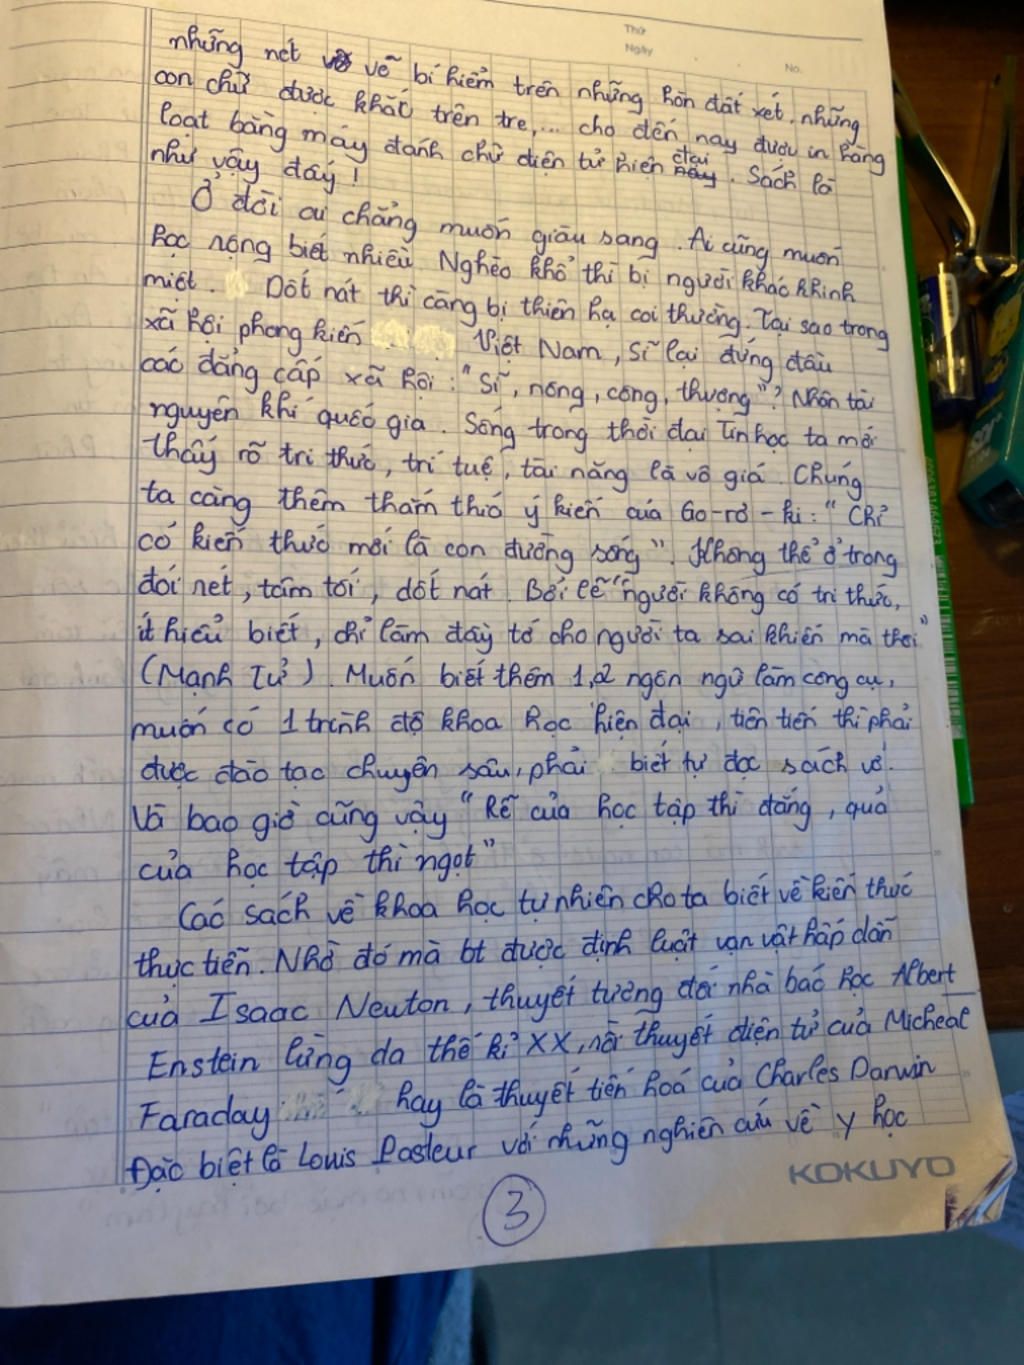 Thứ
Ngày
No.
những nét vẽ bí hiểm trên những hòn đất xét, những
con chữ được khắc trên tre,... cho đến nay được in hàng
loạt bằng máy đánh chữ điện tử hiện đại. Sách là
như vậy đấy!
Ở đời ai chẳng muốn giàu sang. Ai cũng muốn
học rộng biết nhiều. Nghèo khổ thì bị người khác khinh
miệt. Dốt nát thì càng bị thiên hạ coi thường. Tại sao trong
xã hội phong kiến Việt Nam, sĩ lại đứng đầu
các đẳng cấp xã hội: "Sĩ, nông, công, thương"? Nhân tài
nguyên khí quốc gia. Sống trong thời đại Tin học ta mới
thấy rõ tri thức, trí tuệ, tài năng là vô giá. Chúng
ta càng thêm thấm thía ý kiến của Go-rơ-ki: "Chỉ
có kiến thức mới là con đường sống". Không thể ở trong
đói nét, tăm tối, dốt nát. Bởi lẽ "người không có tri thức,
ít hiểu biết, chỉ làm đầy tớ cho người ta sai khiến mà thôi"
(Mạnh Tử). Muốn biết thêm 1,2 ngôn ngữ làm công cụ,
muốn có 1 trình độ khoa học hiện đại, tiên tiến thì phải
được đào tạo chuyên sâu, phải biết tự đọc sách vở.
Và bao giờ cũng vậy "Rễ của học tập thì đắng, quả
của học tập thì ngọt"
Các sách về khoa học tự nhiên cho ta biết về kiến thức
thực tiễn. Nhờ đó mà bt được định luật vạn vật hấp dẫn
của Isaac Newton, thuyết tương đối nhà bác học Albert
Enstein lừng da thế kỉ XX, rồi thuyết điện tử của Micheal
Faraday hay là thuyết tiến hoá của Charles Darwin
Đặc biệt là Louis Pasteur với những nghiên cứu về y học
KOKUYO
3